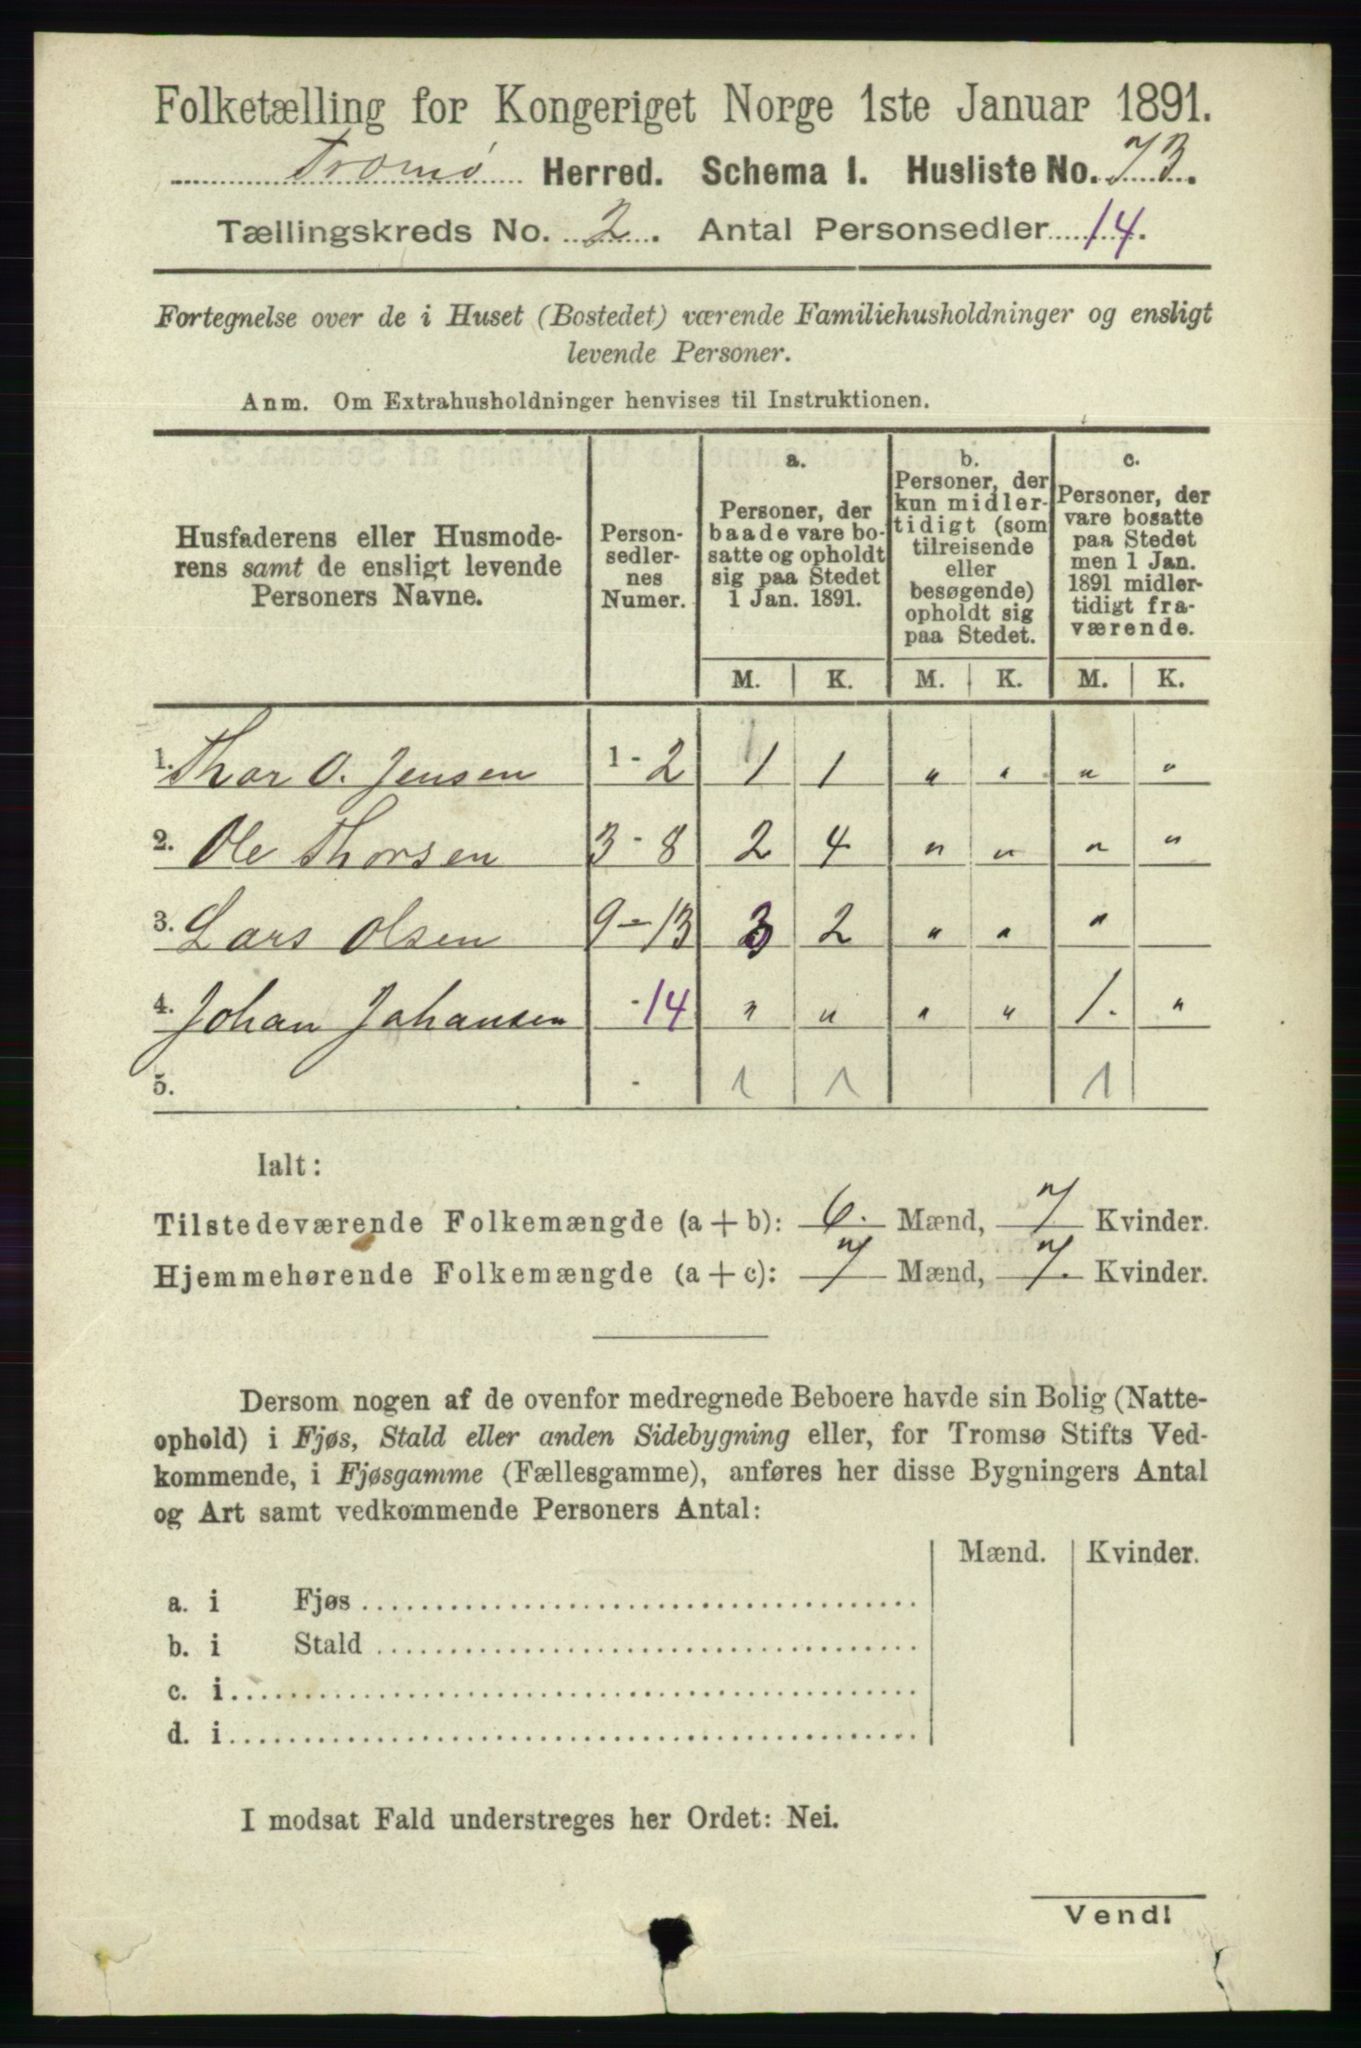 Folketælling for Kongeriget Norge 1ste Januar 1891.
Tromø Herred. Schema I. Husliste No. 73.
Tællingskreds No. 2. Antal Personsedler 14.
Fortegnelse over de i Huset (Bostedet) værende Familiehusholdninger og ensligt
levende Personer.
Anm. Om Extrahusholdninger henvises til Instruktionen.
Husfaderens eller Husmoderens samt de ensligt levende Personers Navne.
Personsedlernes Numer.
a. Personer, der baade vare bosatte og opholdt sig paa Stedet 1 Jan. 1891.
b. Personer, der kun midlertidigt (som tilreisende eller besøgende) opholdt sig paa Stedet.
c. Personer, der vare bosatte paa Stedet men 1 Jan. 1891 midlertidigt fraværende.
M. K. M. K. M. K.
1. Thor O. Jensen 1 - 2 1 1 " " " "
2. Ole Thorsen 3 - 8 2 4 " " " "
3. Lars Olsen 9 - 13 3 2 " " "
4. Johan Johansen - 14 " " " " 1. "
5. - 1 1 1
Ialt:
Tilstedeværende Folkemængde (a + b): 6. Mænd, 7 Kvinder.
Hjemmehørende Folkemængde (a + c): 7 Mænd, 7. Kvinder.
Dersom nogen af de ovenfor medregnede Beboere havde sin Bolig (Natte-
ophold) i Fjøs, Stald eller anden Sidebygning eller, for Tromsø Stifts Ved-
kommende, i Fjøsgamme (Fællesgamme), anføres her disse Bygningers Antal
og Art samt vedkommende Personers Antal:
Mænd. Kvinder.
a. i Fjøs
b. i Stald
c. i
d. i
I modsat Fald understreges her Ordet: Nei.
Vend!